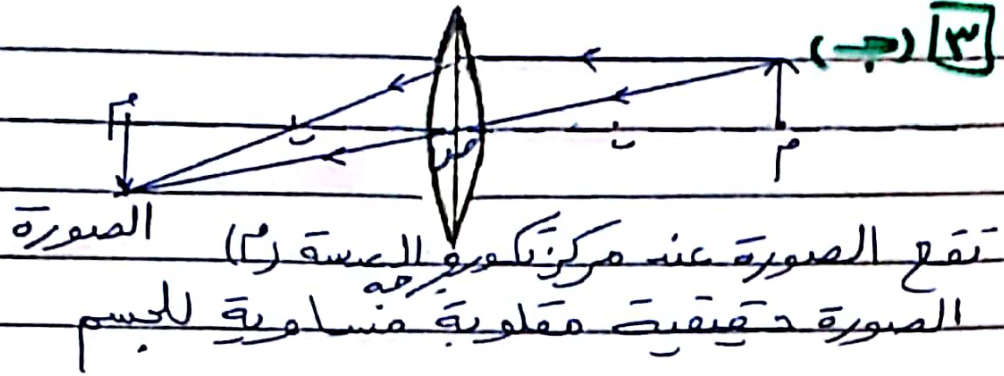 ٣ (جـ)
م ب ب م
س
الصورة
تقع الصورة عند مركز تكور وجه العدسة (م)
الصورة حقيقية مقلوبة مساوية للجسم